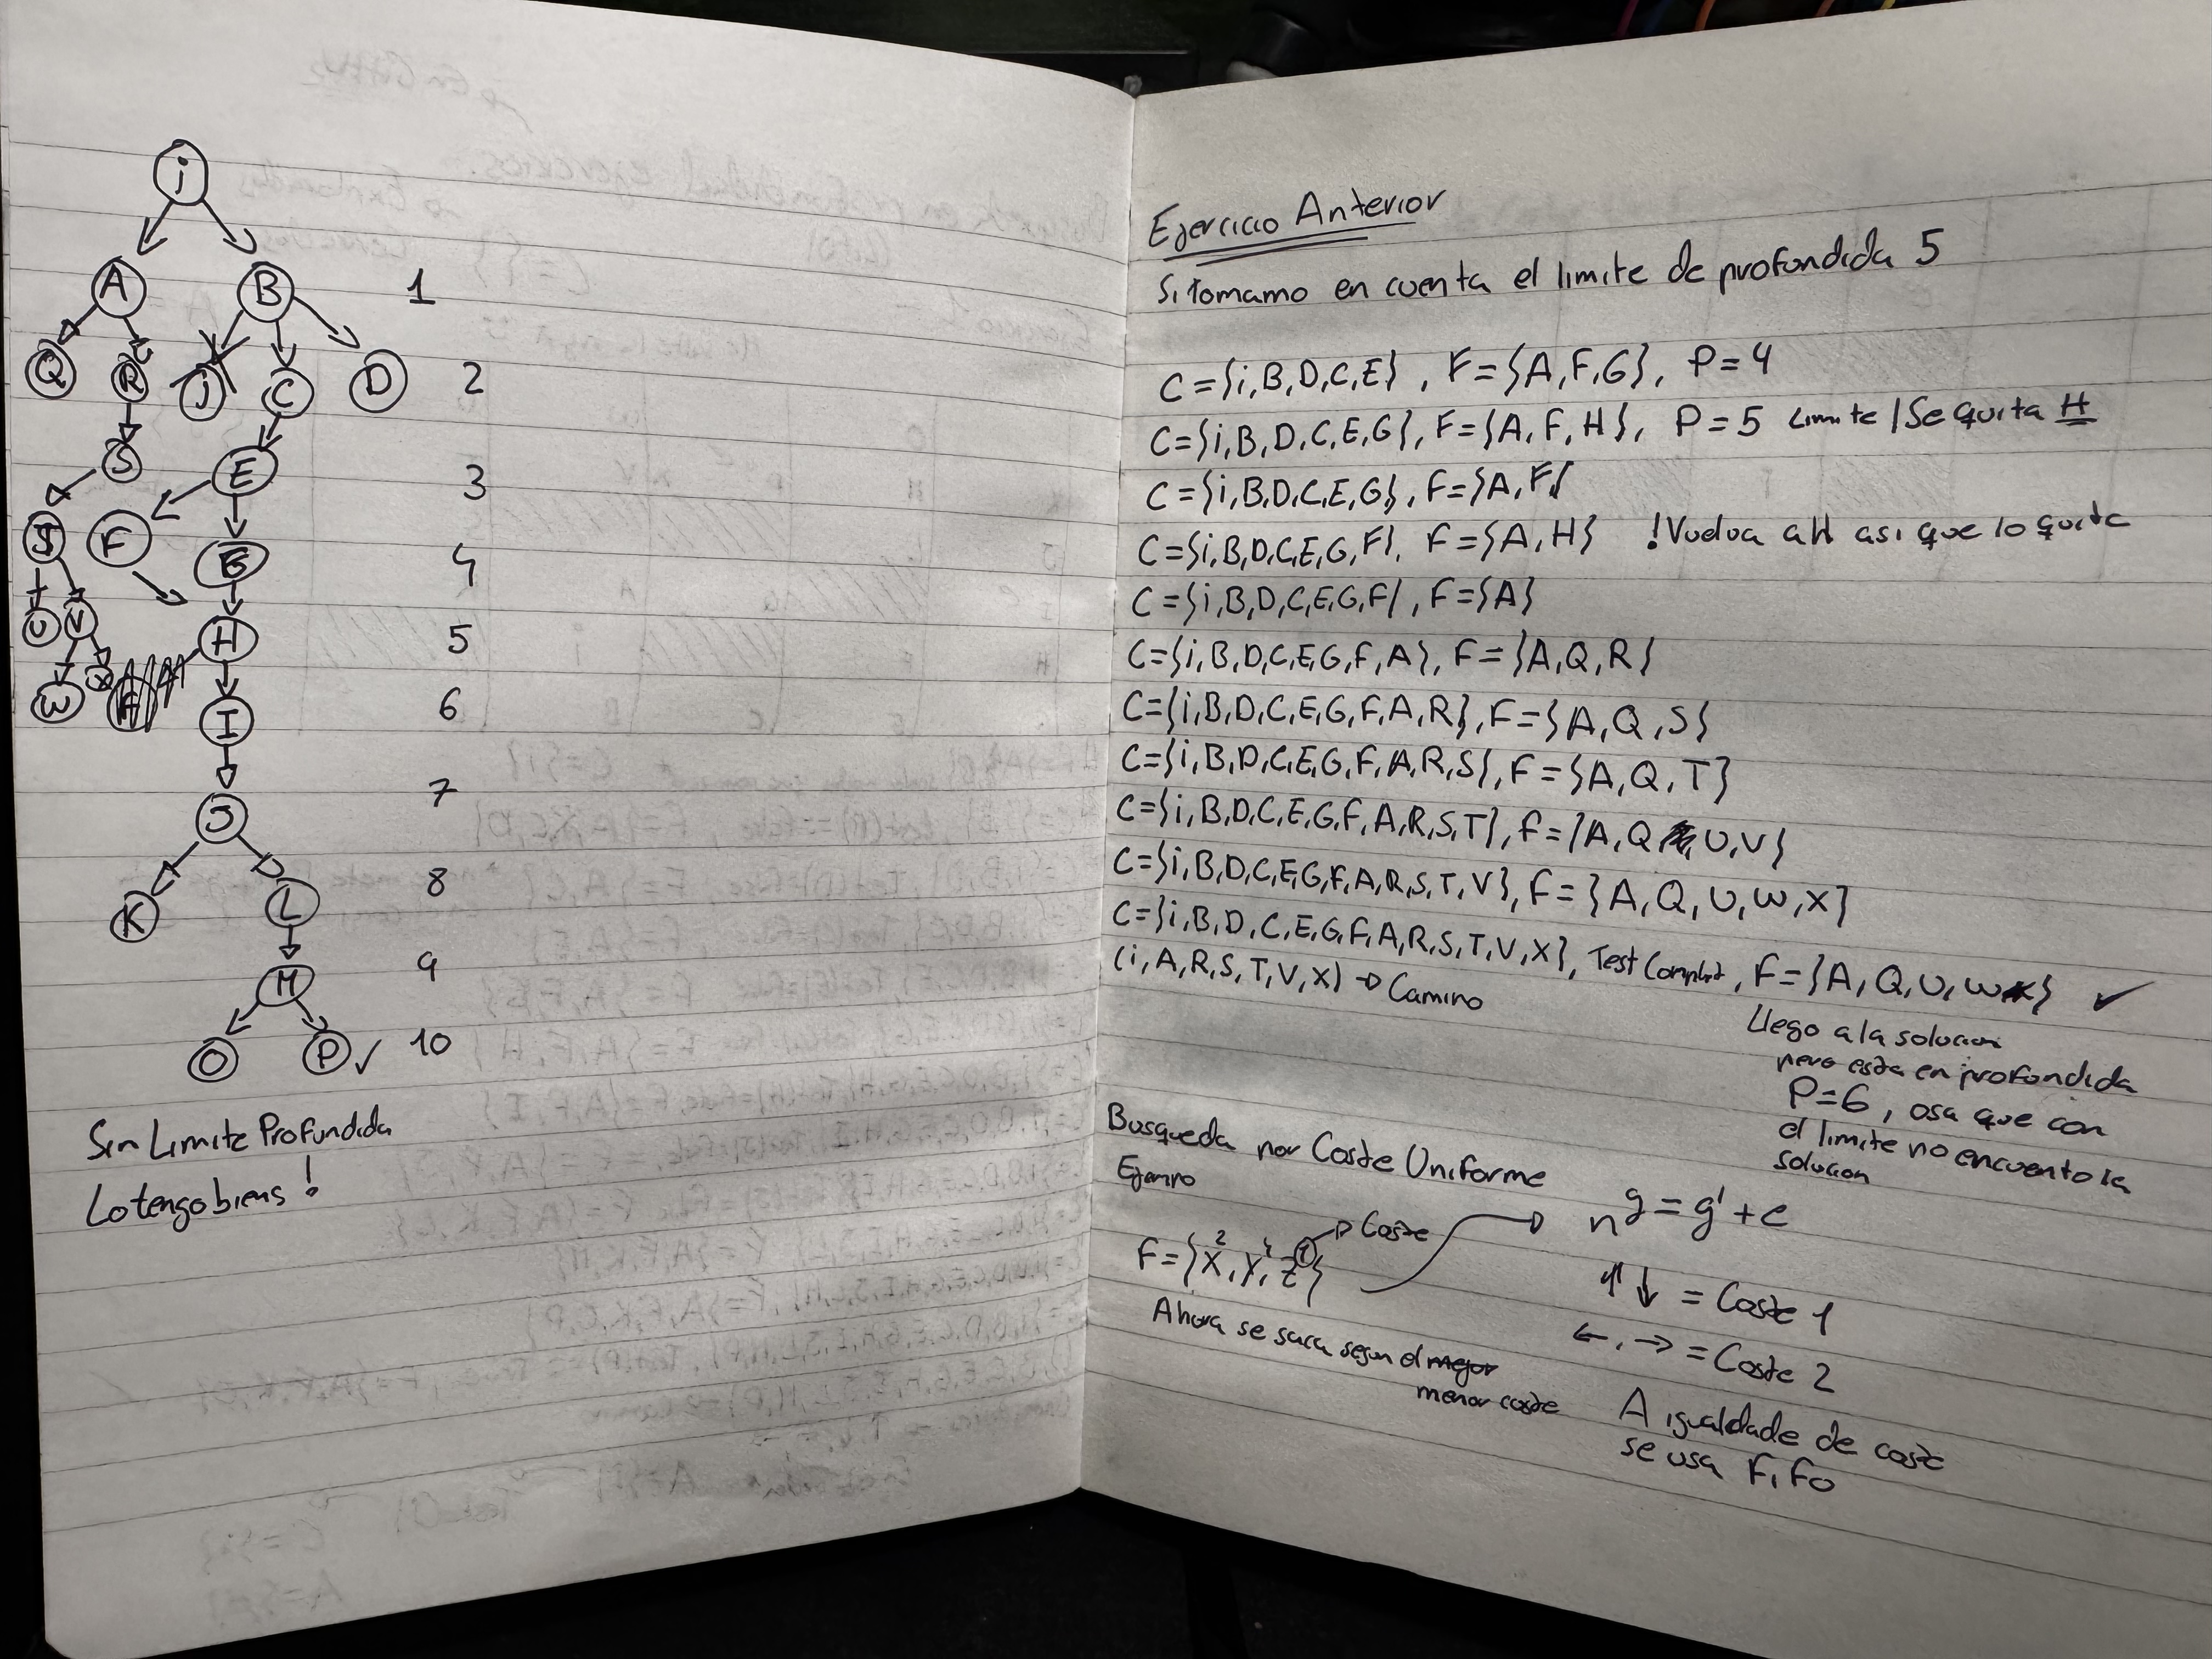 i
A B 1
Q R J C D 2
S E 3
F G 4
U V H 5
W X I 6
J 7
K L 8
M 9
O P ✓ 10
Sin Limite Profundida
Lo tengo biens !
Ejercicio Anterior
Si tomamo en cuenta el limite de profundida 5
C={i,B,D,C,E} , F={A,F,G}, P=4
C={i,B,D,C,E,G}, F={A,F,H}, P=5 Limite / Se quita H
C={i,B,D,C,E,G}, F={A,F}
C={i,B,D,C,E,G,F}, F={A,H} !Vuelva a H asi que lo quite
C={i,B,D,C,E,G,F}, F={A}
C={i,B,D,C,E,G,F,A}, F={A,Q,R}
C={i,B,D,C,E,G,F,A,R}, F={A,Q,S}
C={i,B,D,C,E,G,F,A,R,S}, F={A,Q,T}
C={i,B,D,C,E,G,F,A,R,S,T}, F={A,Q,U,V}
C={i,B,D,C,E,G,F,A,R,S,T,V}, F={A,Q,U,W,X}
C={i,B,D,C,E,G,F,A,R,S,T,V,X}, Test Complet, F={A,Q,U,W} ✓
(i,A,R,S,T,V,X) → Camino
Llego a la solucion
pero esta en profundida
P=6, osa que con
el limite no encuento la
solucion
Busqueda por Coste Uniforme
Ejempo
→ Coste
F={X²,Y⁴,Z①}
Ahora se saca segun el mejor
menor coste
n g=g'+c
↑ ↓ = Coste 1
←, → = Coste 2
A igualdade de coste
se usa FiFo